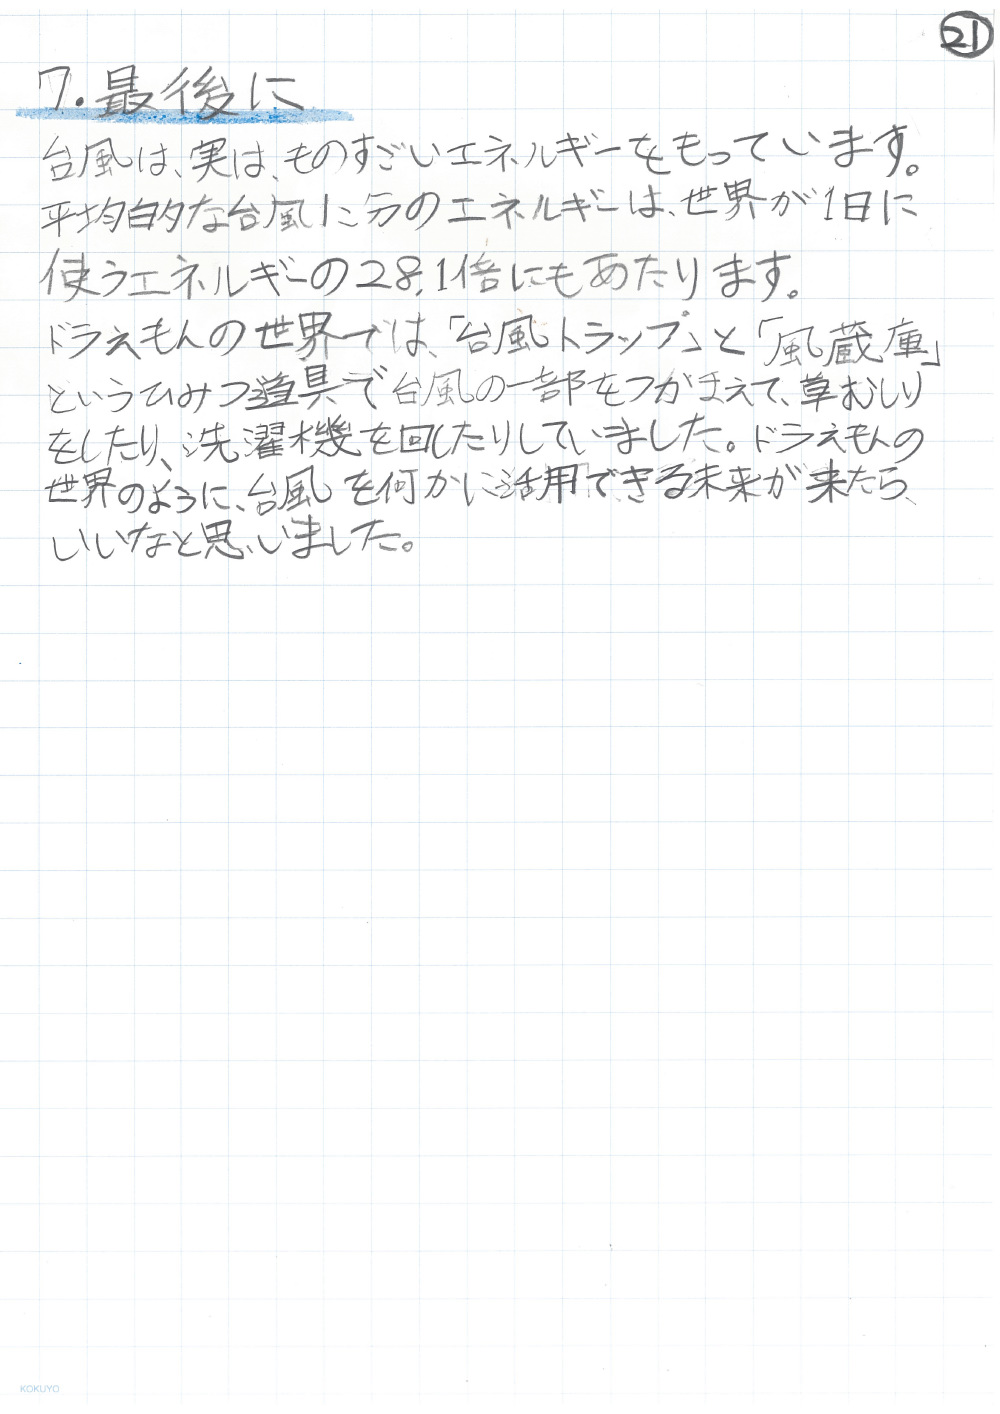 21
7.最後に
台風は、実は、ものすごいエネルギーをもっています。
平均的な台風1こ分のエネルギーは、世界が1日に
使うエネルギーの28.1倍にもあたります。
ドラえもんの世界では、「台風トラップ」と「風蔵庫」
というひみつ道具で台風の一部をつかまえて、草むしり
をしたり、洗濯機を回したりしていました。ドラえもんの
世界のように、台風を何かに活用できる未来が来たら、
いいなと思いました。
KOKUYO